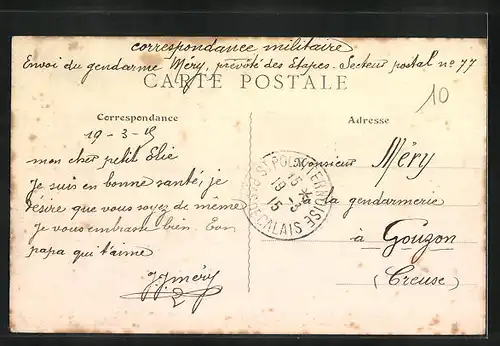 correspondance militaire
Envoi du gendarme Méry, prévôté des Etapes. Secteur postal nº 77
CARTE POSTALE
10
Correspondance
19-3-15
mon cher petit Elie
Je suis en bonne santé, je
désire que vous soyez de même
Je vous embrasse bien. Ton
papa qui t'aime
J. Méry
Adresse
Monsieur Méry
la gendarmerie
à Gouzon
(Creuse)
ST POL S TERNOISE
15
19-3
15
PAS DE CALAIS